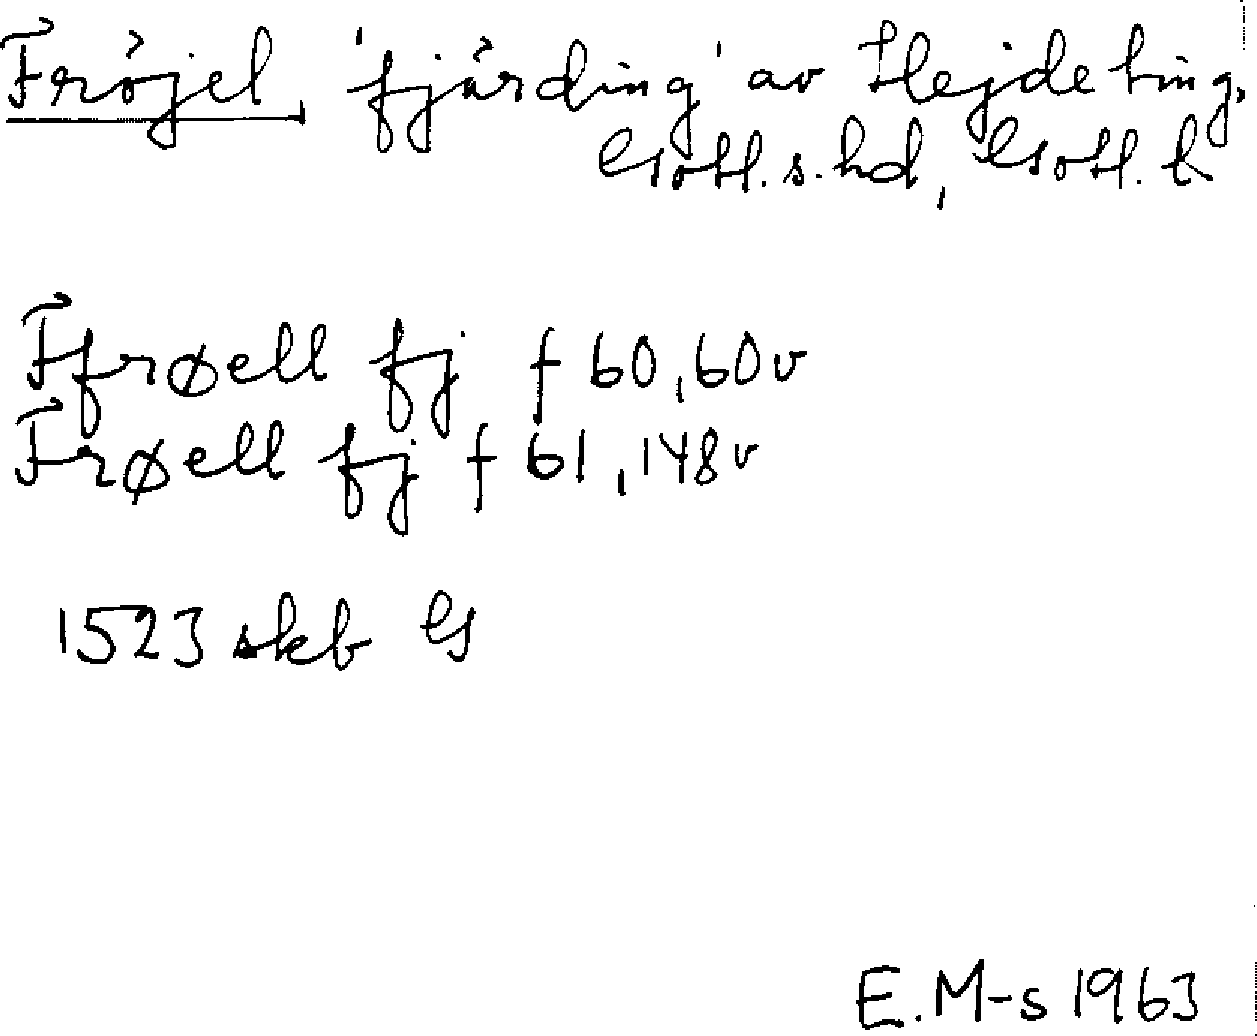 Fröjel, 'fjärding' av Hejde ting,
Gotl. s. hd, Gotl. l.
Ffrøell fj f 60, 60v
Frøell fj f 61, 148v
1523 skb G
E. M-s 1963